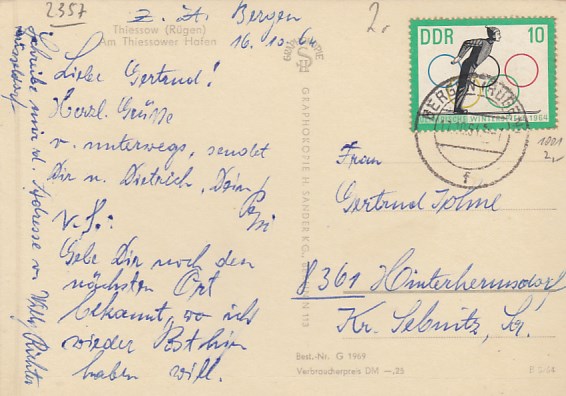 2357
z. Zt. Bergen
2,-
16.10.64
Thiessow (Rügen)
Am Thiessower Hafen
Liebe Gertrud!
Herzl. Grüße
v. unterwegs, sendet
Dir u. Dietrich, Dein
N.S.:
Gebe Dir noch den
nächsten Ort
bekannt, wo ich
wieder Post hin
haben will.
Schreibe mir d. Adresse v. Willy Richter
Düsseldorf
GRAPHOKOPIE H. SANDER KG., BERLIN 113
DDR 10
WINTERSPIELE 1964
BERGEN (RÜGEN)
f
1001
2,-
Frau
Gertrud Tohme
8361 Hinterhermsdorf
Kr. Sebnitz, Sa.
Best.-Nr. G 1969
Verbraucherpreis DM —,25